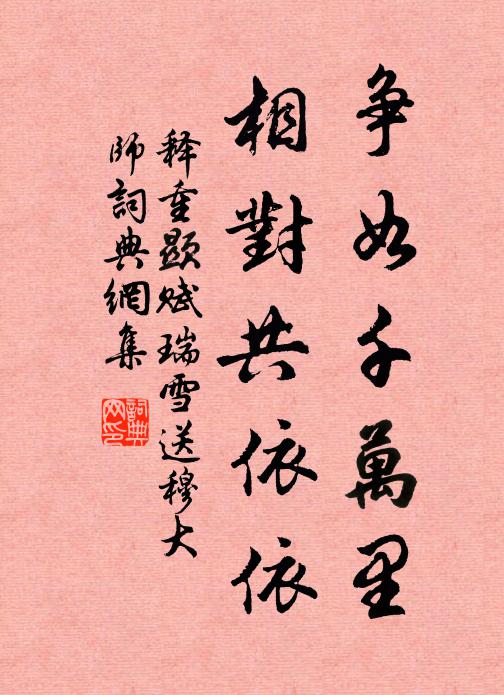 争如千萬里
相對共依依
释重顯賦瑞雪送穆大
師詞典網集
詞典
网印